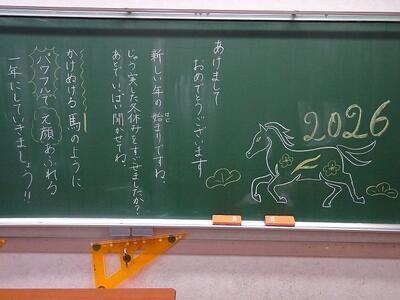 あけまして
おめでとうございます
新しい年の始まりですね。
じゅう実した冬休みをすごせましたか?
あとでいっぱい聞かせてね。
かけぬける馬のように
パワフルで笑顔あふれる
一年にしていきましょう!!
2026